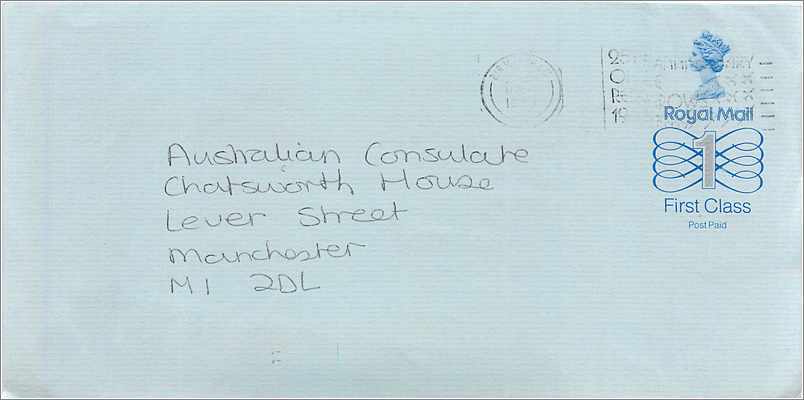 Royal Mail
1
First Class
Post Paid
Australian Consulate
Chatsworth House
Lever Street
Manchester
M1 2DL